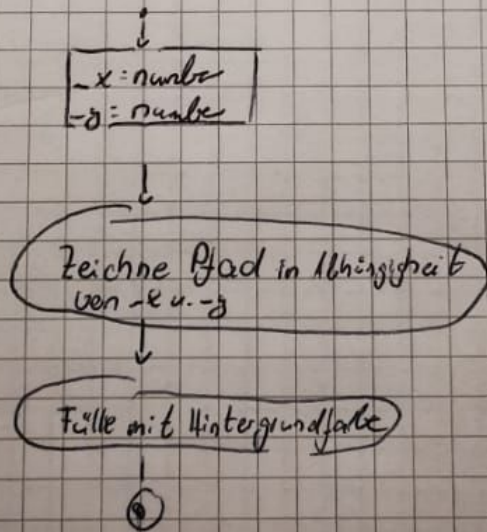 _x : number
_y : number
Zeichne Pfad in Abhängigkeit
von _x u. _y
Fülle mit Hintergrundfarbe